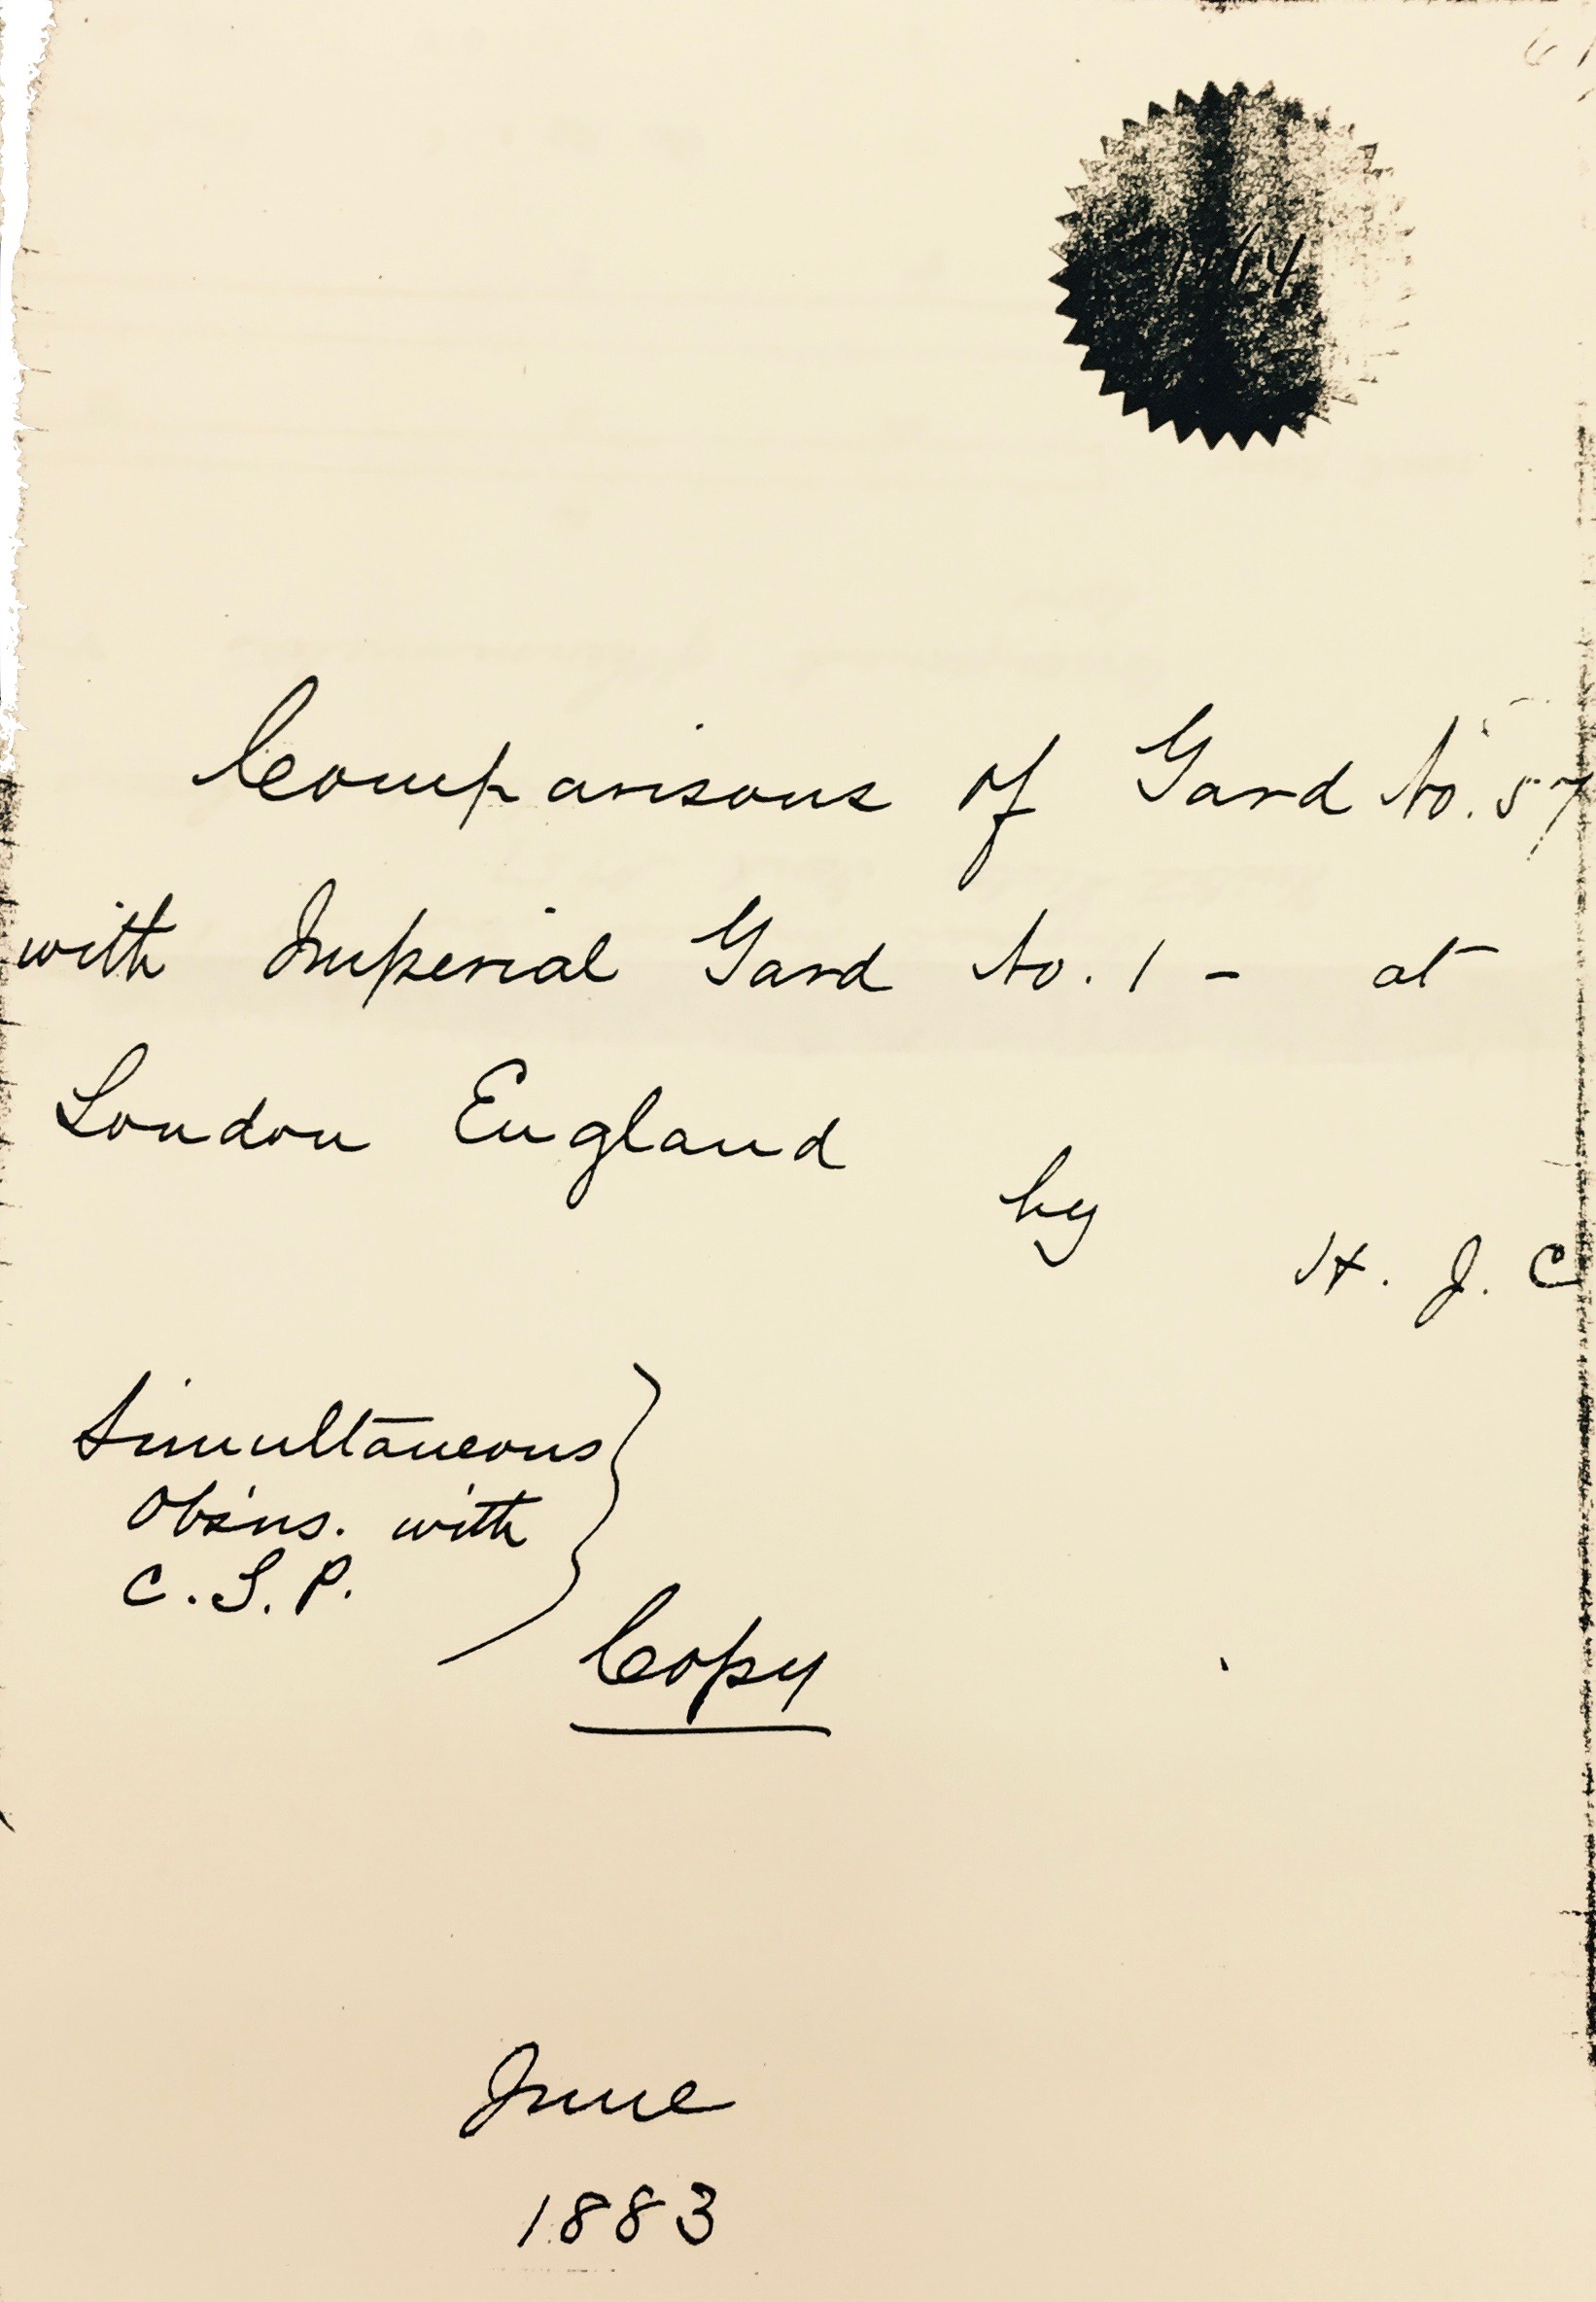 Comparisons of Yard No. 57
with Imperial Yard No. 1 - at
London England
by
H. J. C
Simultaneous
Obsns. with
C. S. P.
Copy
June
1883